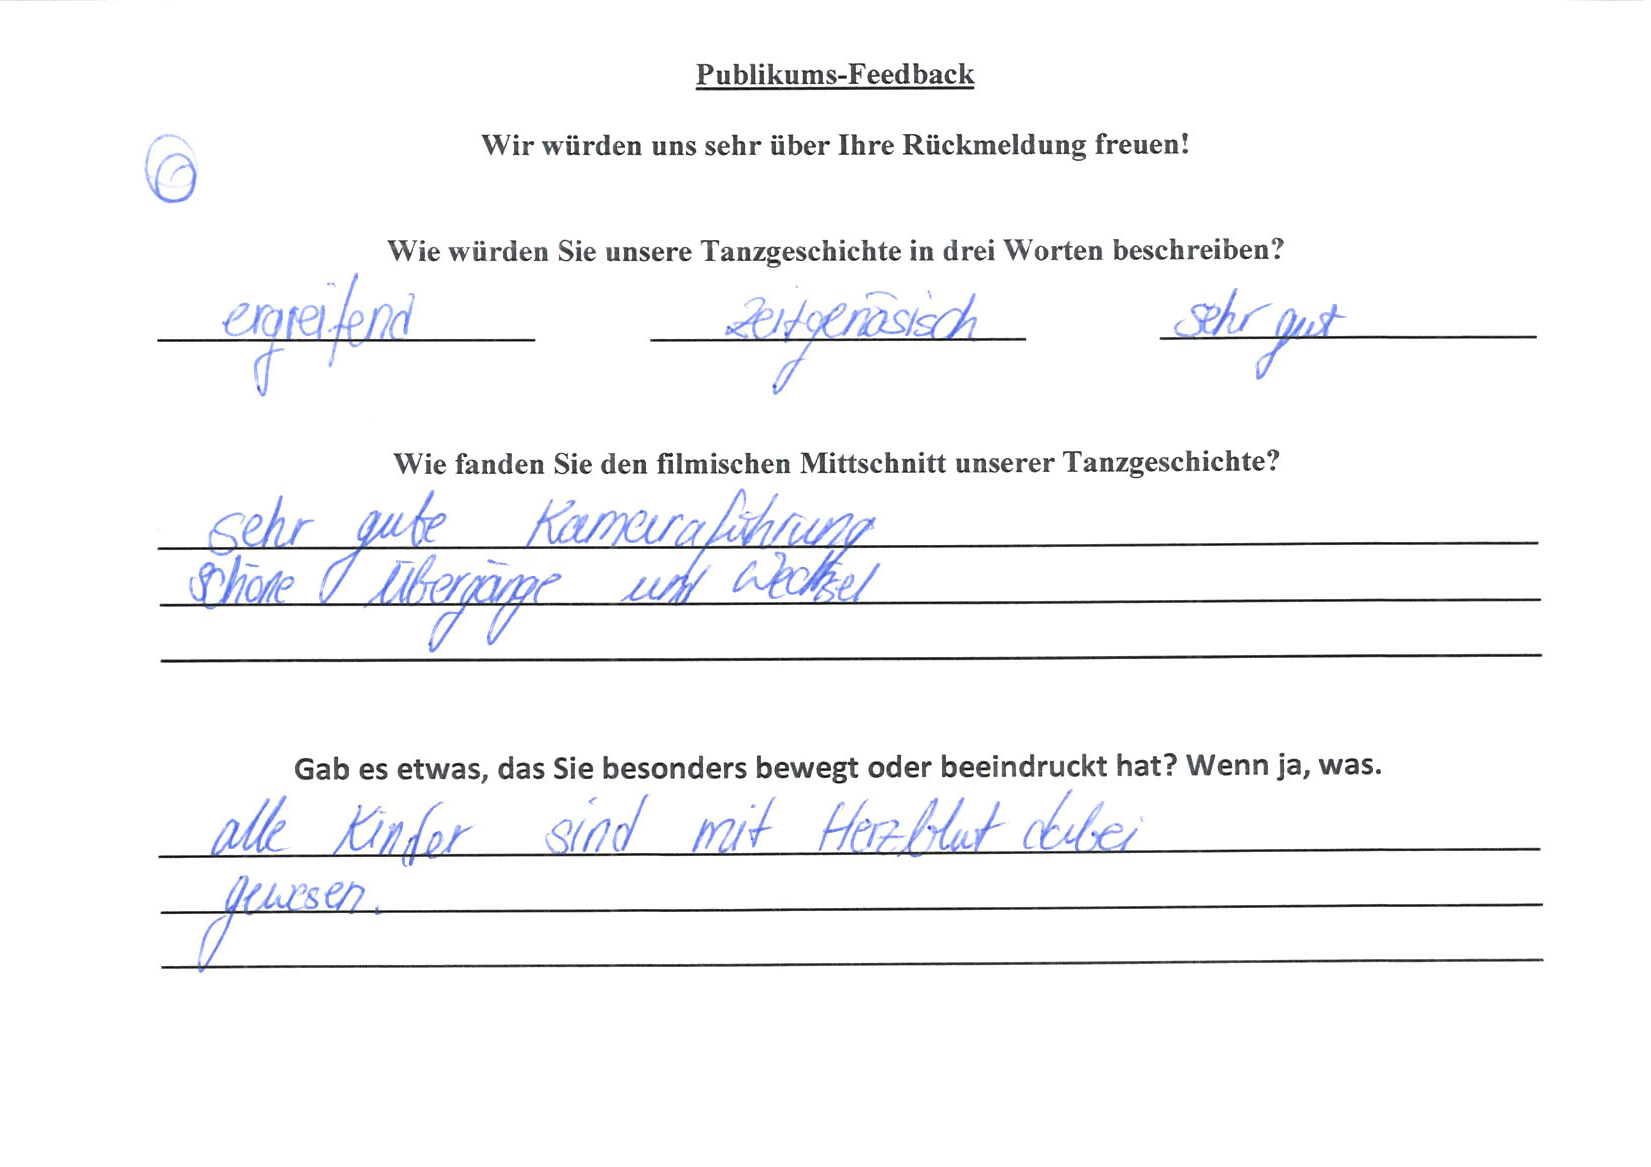 Publikums-Feedback
Wir würden uns sehr über Ihre Rückmeldung freuen!
Wie würden Sie unsere Tanzgeschichte in drei Worten beschreiben?
ergreifend zeitgenösisch sehr gut
Wie fanden Sie den filmischen Mittschnitt unserer Tanzgeschichte?
sehr gute Kameraführung
schöne Übergänge und Wechsel
Gab es etwas, das Sie besonders bewegt oder beeindruckt hat? Wenn ja, was.
alle Kinder sind mit Herzblut dabei
gewesen.